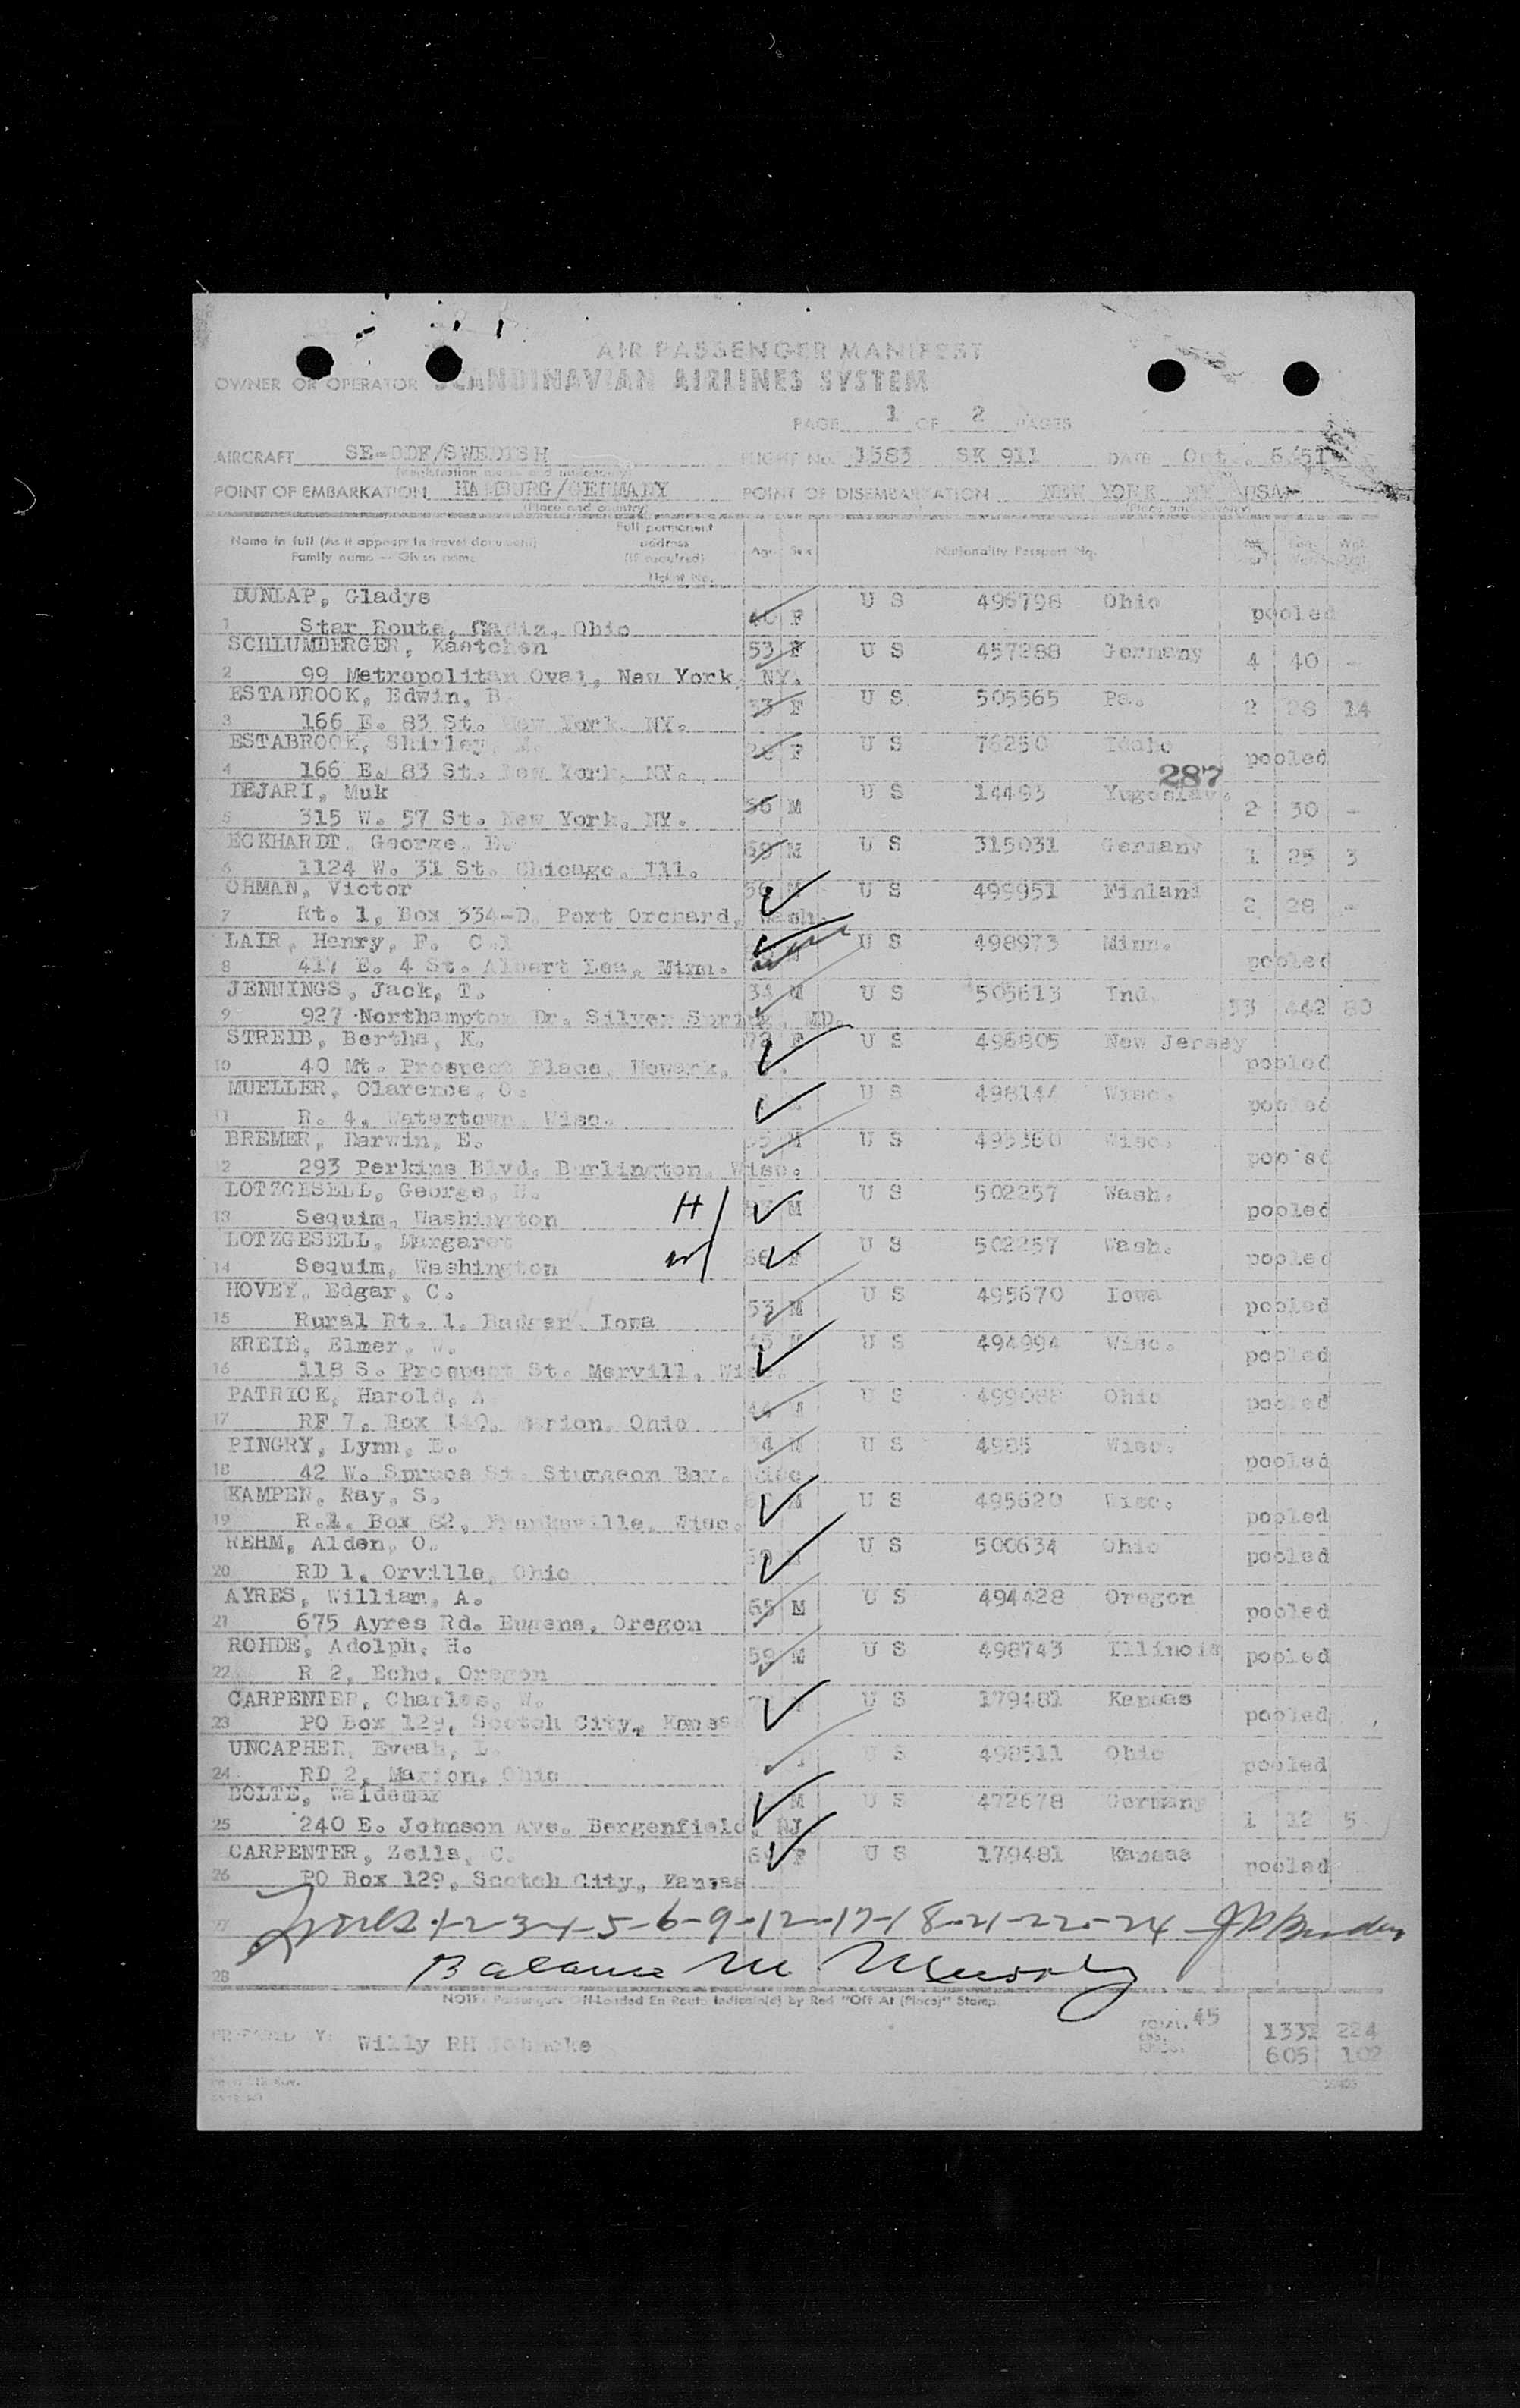 AIR PASSENGER MANIFEST
OWNER OR OPERATOR SCANDINAVIAN AIRLINES SYSTEM
PAGE 1 OF 2 PAGES
AIRCRAFT SE-DDF/SWEDISH FLIGHT No. 1583 SK 911 DATE Oct. 6/51
(Registration marks and nationality)
POINT OF EMBARKATION HAMBURG/GERMANY POINT OF DISEMBARKATION NEW YORK NY USA
(Place and country) (Place and country)
Name in full (As it appears in travel document) Full permanent address (if required) Age Sex Nationality Passport No.
Family name — Given name
DUNLAP, Gladys U S Ohio pooled
1 Star Route, Cadiz, Ohio 40 F
SCHLUMBERGER, Kaetchen 53 F U S 457288 Germany 4 40 -
2 99 Metropolitan Oval, New York, NY.
ESTABROOK, Edwin, B. 33 F U S 505565 Pa. 2 28 14
3 166 E. 83 St. New York, NY.
ESTABROOK, Shirley, F U S 76250 Idaho pooled
4 166 E. 83 St. New York, NY.
287
DEJARI, Muk 56 M U S 14493 Yugoslav. 2 30 -
5 315 W. 57 St. New York, NY.
ECKHARDT, George, M U S 315031 Germany 1 25 3
6 1124 W. 31 St. Chicago, Ill.
OHMAN, Victor M U S 499951 Finland 2 28 -
7 Rt. 1, Box 334-D, Port Orchard, Wash.
LAIR, Henry, F. M U S 498973 Minn. pooled
8 417 E. 4 St. Albert Lea, Minn.
JENNINGS, Jack, T. 34 M U S 505613 Ind. 33 442 80
9 927 Northampton Dr. Silver Spring, MD.
STREIB, Bertha, K. 72 F U S 496805 New Jersey pooled
10 40 Mt. Prospect Place, Newark,
MUELLER, Clarence, O. U S 498144 Wisc. pooled
11 R. 4, Watertown, Wisc.
BREMER, Darwin, E. M U S 495360 Wisc. pooled
12 293 Perkins Blvd. Burlington, Wisc.
LOTZGESELL, George, H. M U S 502257 Wash. pooled
13 Sequim, Washington H
LOTZGESELL, Margaret F U S 502257 Wash. pooled
14 Sequim, Washington W
HOVEY, Edgar, C. 53 M U S 495670 Iowa pooled
15 Rural Rt. 1, Badger, Iowa
KREIE, Elmer, W. 45 M U S 494994 Wisc. pooled
16 118 S. Prospect St. Mervill, Wisc.
PATRICK, Harold, A 44 M U S 499088 Ohio pooled
17 RF 7, Box 140, Marion, Ohio
PINGRY, Lynn, M U S 4985 Wisc. pooled
18 42 W. Spruce St. Sturgeon Bay, Wisc
KAMPEN, Ray, S. M U S 495620 Wisc. pooled
19 R.1, Box 82, Franksville, Wisc.
REHM, Alden, O. M U S 500634 Ohio pooled
20 RD 1, Orville, Ohio
AYRES, William, A. 65 M U S 494428 Oregon pooled
21 675 Ayres Rd. Eugene, Oregon
ROHDE, Adolph, H. 59 M U S 498743 Illinois pooled
22 R 2, Echo, Oregon
CARPENTER, Charles, W. U S 179481 Kansas pooled
23 PO Box 129, Scotch City, Kansas
UNCAPHER, Eveah, L. U S 498511 Ohio pooled
24 RD 2, Marion, Ohio
BOLTE, Waldemar M U S 472678 Germany 1 12 5
25 240 E. Johnson Ave. Bergenfield, NJ
CARPENTER, Zella, C. F U S 179481 Kansas pooled
26 PO Box 129, Scotch City, Kansas
27 Lines 1-2-3-4-5-6-9-12-17-18-21-22-24
28 Balance
NOTE: Passengers Off-Loaded En Route Indicate(d) by Red "Off At (Place)" Stamp
TOTAL 45 1332 224
PREPARED BY: Willy RH 605 102